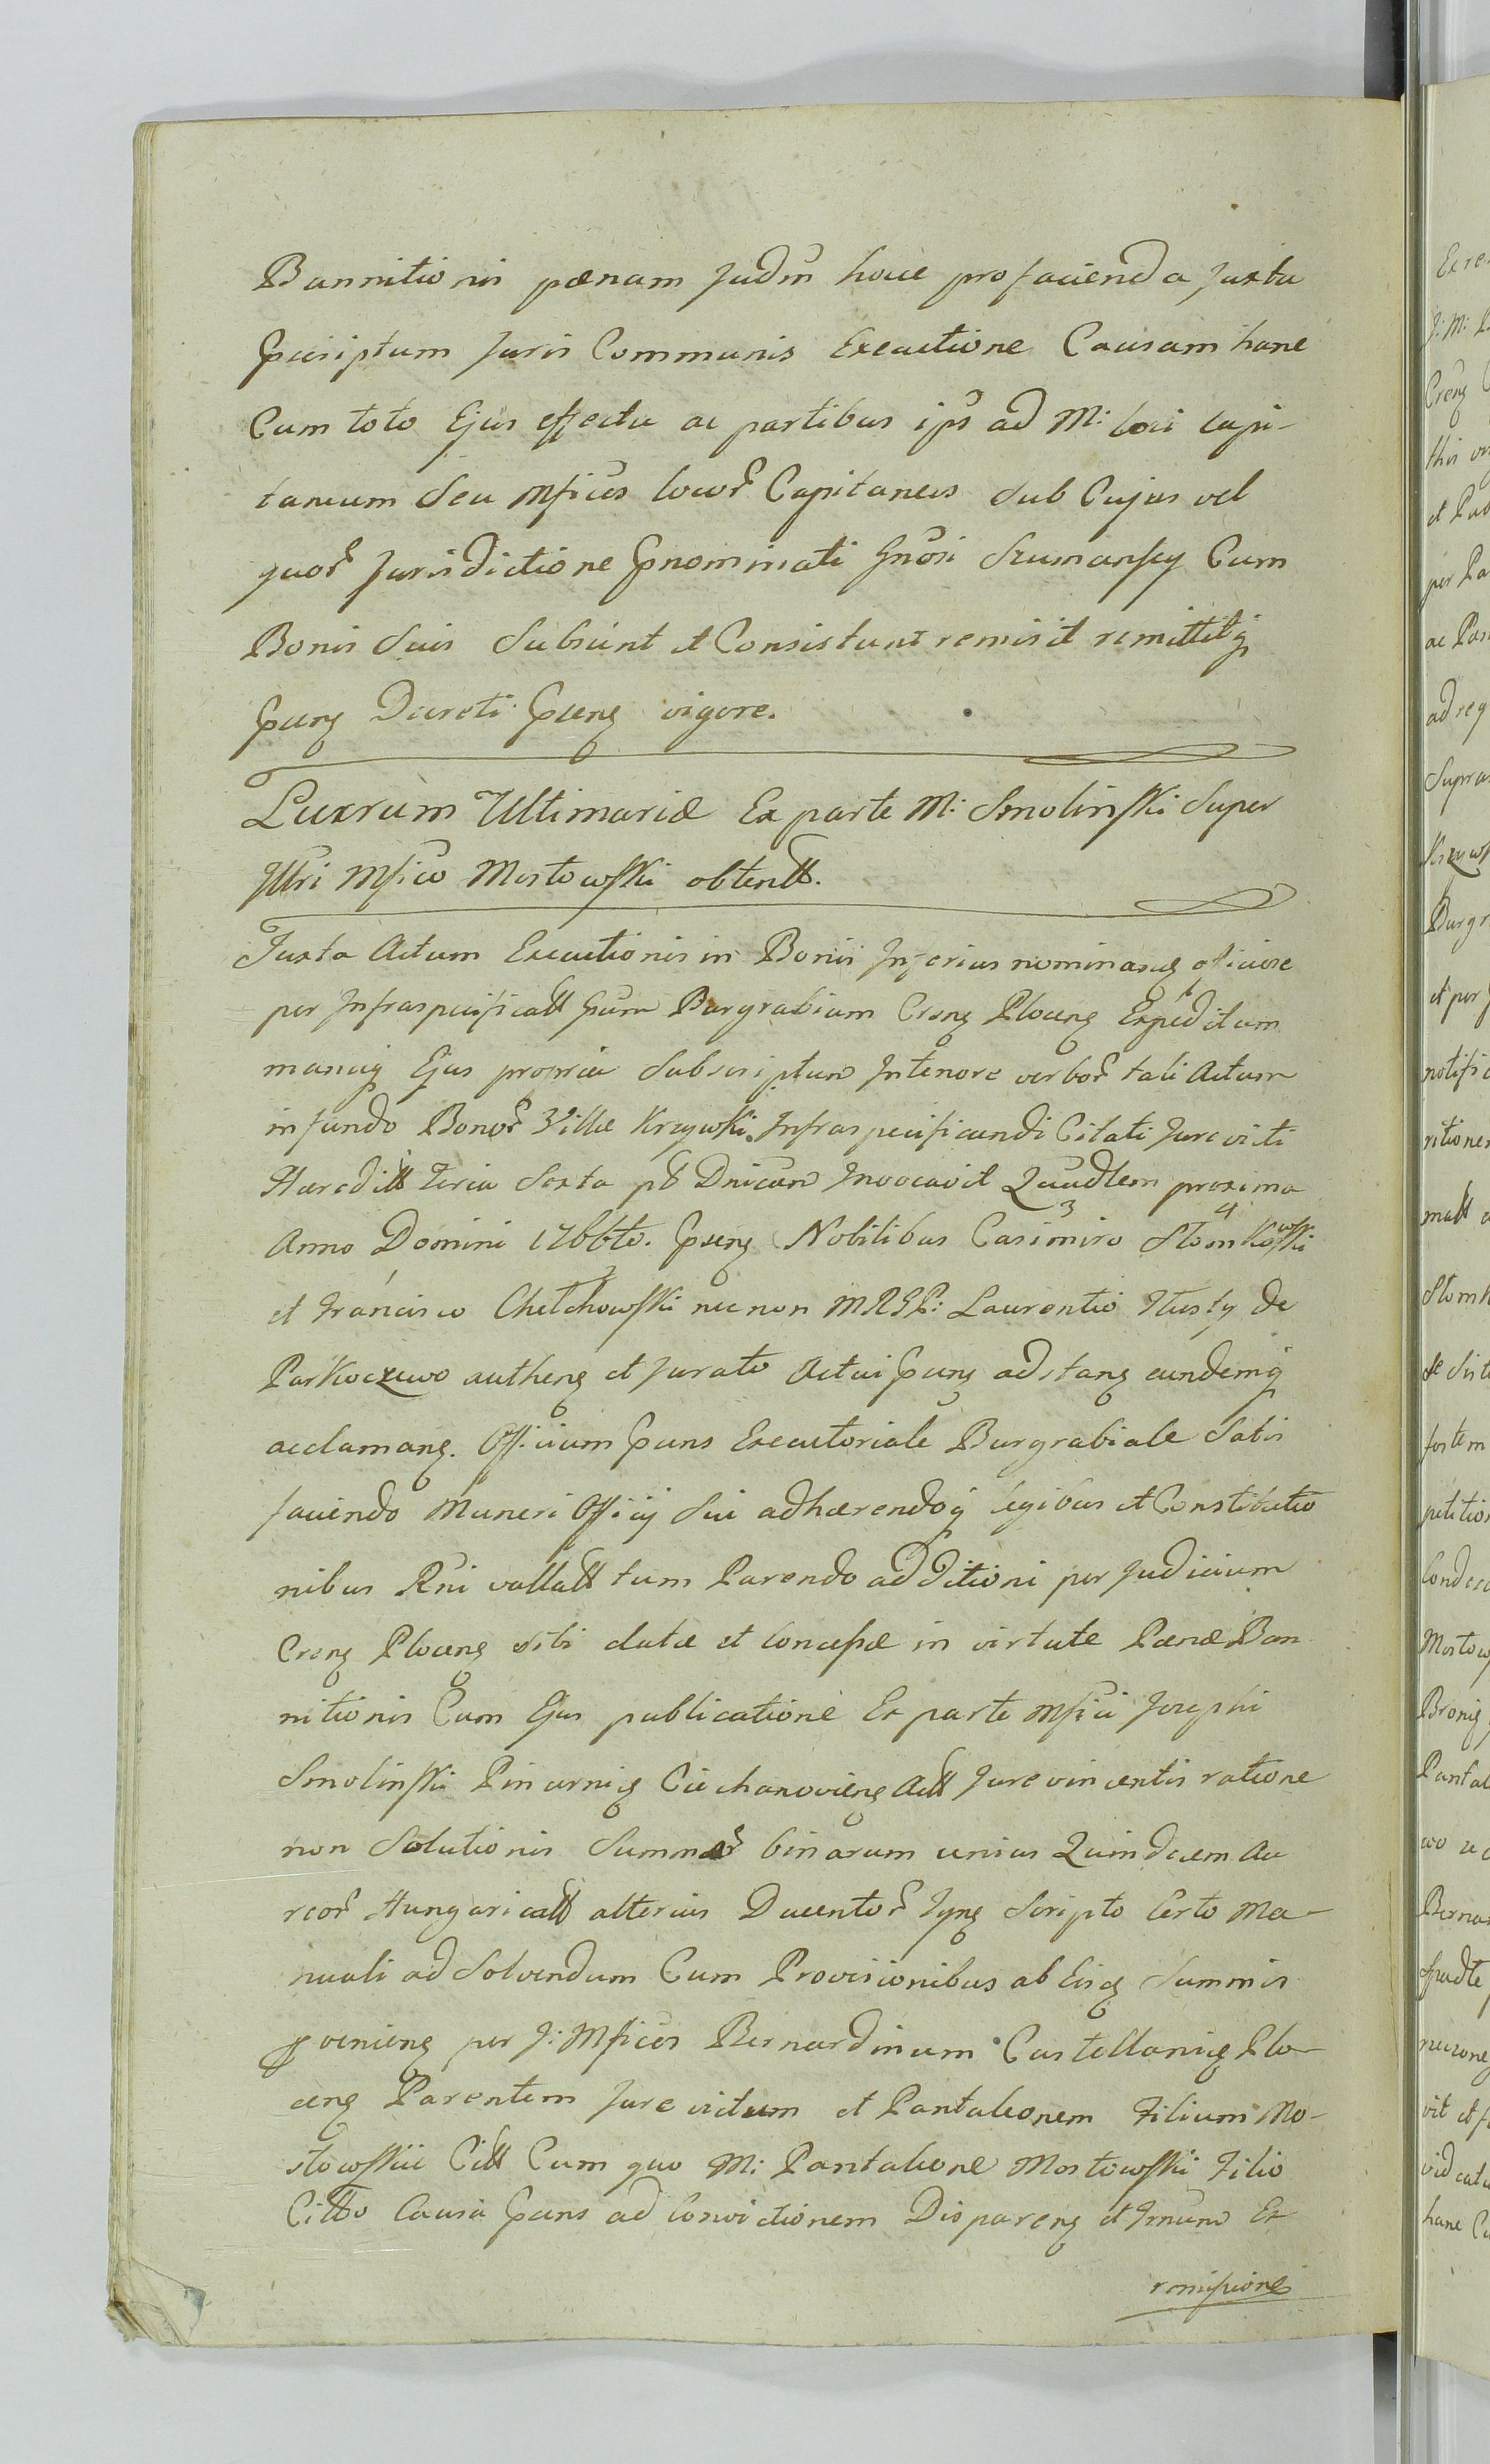 Bannitionis pœnam Judm hocce pro facienda Juxta
Pscriptum Juris Communis Executione Causam hanc
Cum toto Ejus effectu ac partibus ips ad M: loci Capi-
taneum Seu Mficos locor Capitaneos Sub Cujus vel
quor Jurisdictione Pnominati Gnosi Szumanscy Cum
Bonis Suis Subsunt et Consistunt remisit remittitq
Pung Decreti Pseng vigore.
Luxrum Ultimariæ Ex parte M: Smolinski Super
Illri Mfico Mostowski obtentt.
Juxta Actum Executionis in Bonis Inferius nominang officiose
per Infraspecificatt Gsum Burgrabium Creng Ploceng Expeditum
manuq Ejus propria Subscriptum In tenore verbor tali Actum
in fundo Bonor Villæ Krzywki Infraspecificandi Citati Jurevicti
Hæreditt Feria Sexta pt Dnicam Invocavit Quadtem proxima
Anno Domini 1766to. Pseng Nobilibus Casimiro 3 Słomkowski 4
et Francisco 1 Chełchowski 2 nec non MRGL: Laurentio Tłusty de
Parkoczewo autheng et Jurato Actui Pung adstang eundemq
acclamang. Officium Puns Executoriale Burgrabiale Satis
faciendo Muneri Officij Sui adhærendoq legibus et Constitutio
nibus Rni vallatt tum Parendo additioni per Judicium
Creng Ploceng sibi datæ et concessæ in virtute Pænæ Ban
nitionis Cum Ejus publicatione Ex parte Mfici Josephi
Smolinski Pincernig Ciechanovieng Actt Jurevincentis ratione
non Solutionis Summar binarum unius Quindecem Au
reor Hungaricatt alterius Ducentor Tyng Scripto Certo Ma-
nuali ad Solvendum Cum Provisionibus ab Eisq Summis
pvenieng per J: Mficos Bernardinum Castellanig Plo-
ceng Parentem Jurevictum et Pantaleonem Filium Mo-
stowskie Citt Cum quo M: Pantaleone Mostowski Filio
Citto Causa Puns ad Convictionem Dispareng et Tmnum Ex
remissione